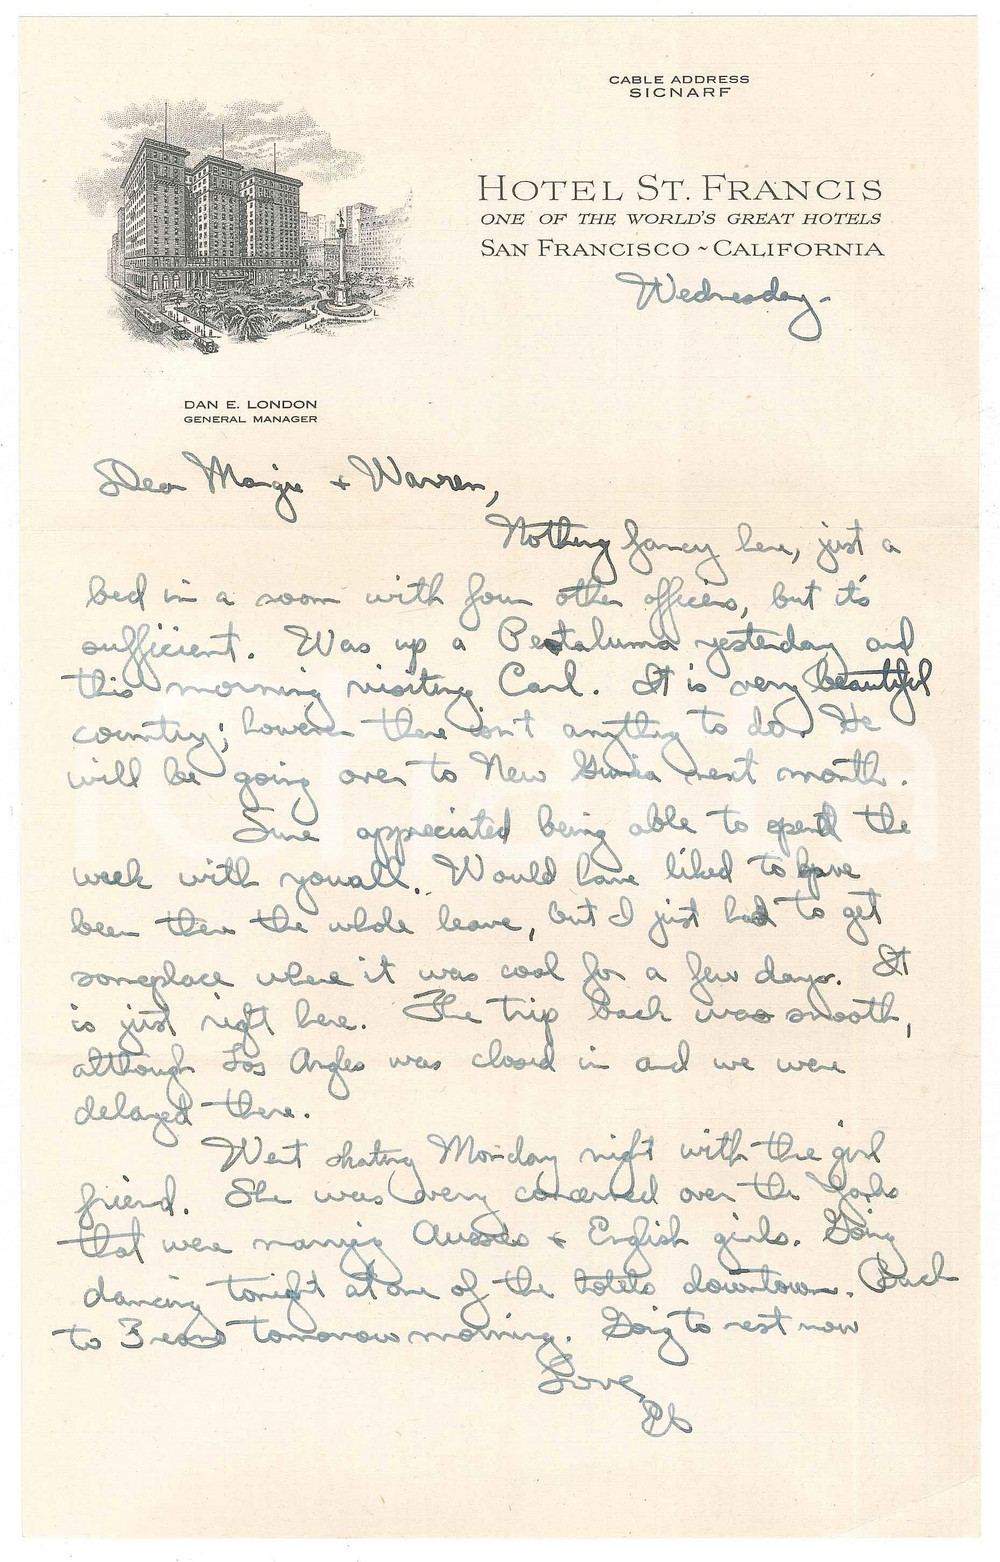 CABLE ADDRESS
SIGNARF
HOTEL ST. FRANCIS
ONE OF THE WORLD'S GREAT HOTELS
SAN FRANCISCO ~ CALIFORNIA
Wednesday-
DAN E. LONDON
GENERAL MANAGER
Dear Margie + Warren,
Nothing fancy here, just a
bed in a room with four other officers, but it's
sufficient. Was up a Pestaluma yesterday and
this morning visiting Carl. It is very beautiful
country; however there isn't anything to do. He
will be going over to New Guinea next month.
Sure appreciated being able to spend the
week with youall. Would have liked to have
been there the whole leave, but I just had to get
someplace where it was cool for a few days. It
is just right here. The trip back was smooth,
although Los Angles was closed in and we were
delayed there.
Went skating Monday night with the girl
friend. She was very concerned over the Yanks
that were marrying Aussies + English girls. Going
dancing tonight at one of the hotels downtown. Back
to tomorrow morning. Going to rest now
Love,